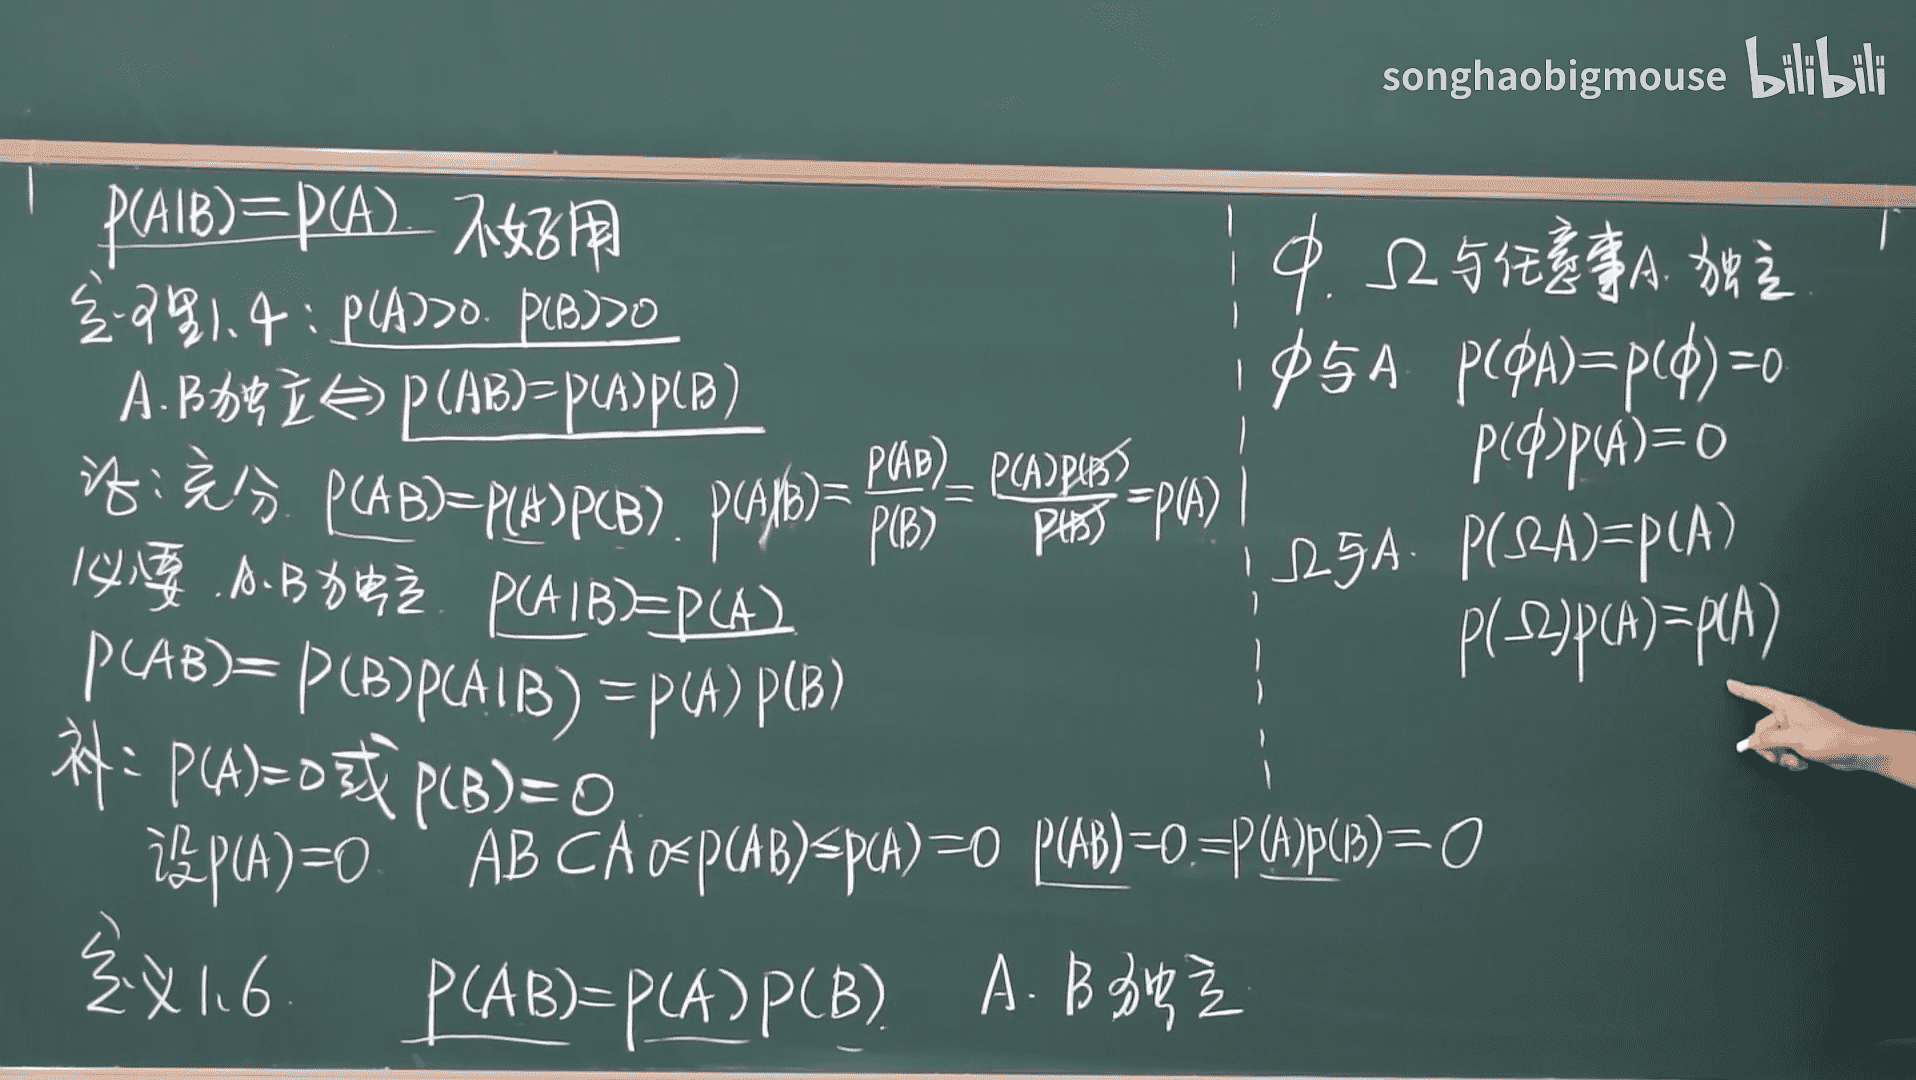 songhaobigmouse bilibili
P(A|B)=P(A). 不好用
定理1.4: P(A)>0. P(B)>0
A.B独立⇔P(AB)=P(A)P(B)
证: 充分. P(AB)=P(A)P(B). P(A|B)=P(AB)/P(B)=P(A)P(B)/P(B)=P(A)
必要. A.B独立. P(A|B)=P(A)
P(AB)=P(B)P(A|B)=P(A)P(B)
补: P(A)=0或P(B)=0
设P(A)=0. AB⊂A 0≤P(AB)≤P(A)=0 P(AB)=0.=P(A)P(B)=0
定义1.6. P(AB)=P(A)P(B). A.B独立.
ϕ. Ω与任意事A.独立.
ϕ与A. P(ϕA)=P(ϕ)=0
P(ϕ)P(A)=0
Ω与A. P(ΩA)=P(A)
P(Ω)P(A)=P(A)